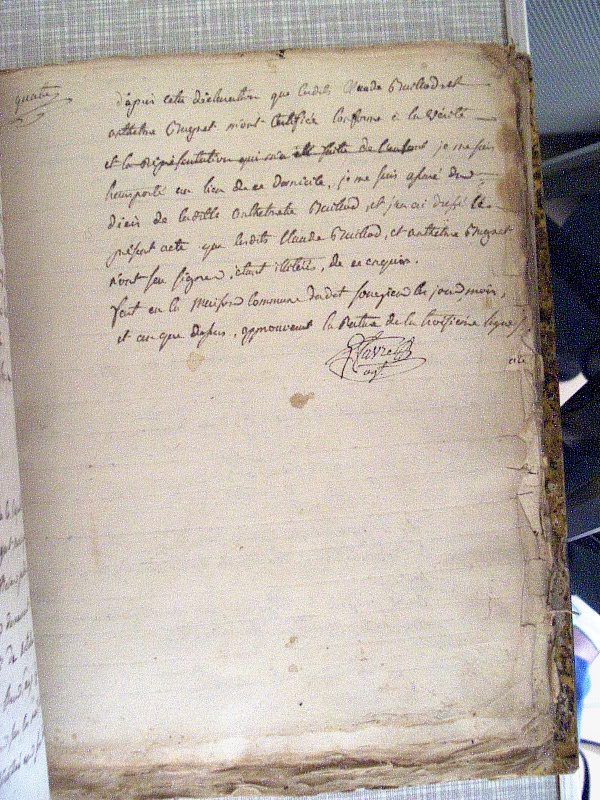 quatre
d'apres cette déclaration que lesdits Claude Buillod et
anthelme Bugnet m'ont Certifiée conforme a la vérité
et la Représentation qui m'a été faite de l'enfant je me suis
transporté au lieu de ce domicile, je me suis assuré du
décès de ladite Buillod, et j'en ai dressé le
présent acte que lesdits Claude Buillod, et anthelme Bugnet
n'ont seu signer, étant illiteré, de ce enquis.
fait en la Maison Commune dudet les jour, mois,
et an que dessus, approuvant la Rature de la troisieme ligne
agt